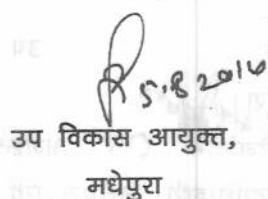 5.8.2016
उप विकास आयुक्त,
मधेपुरा